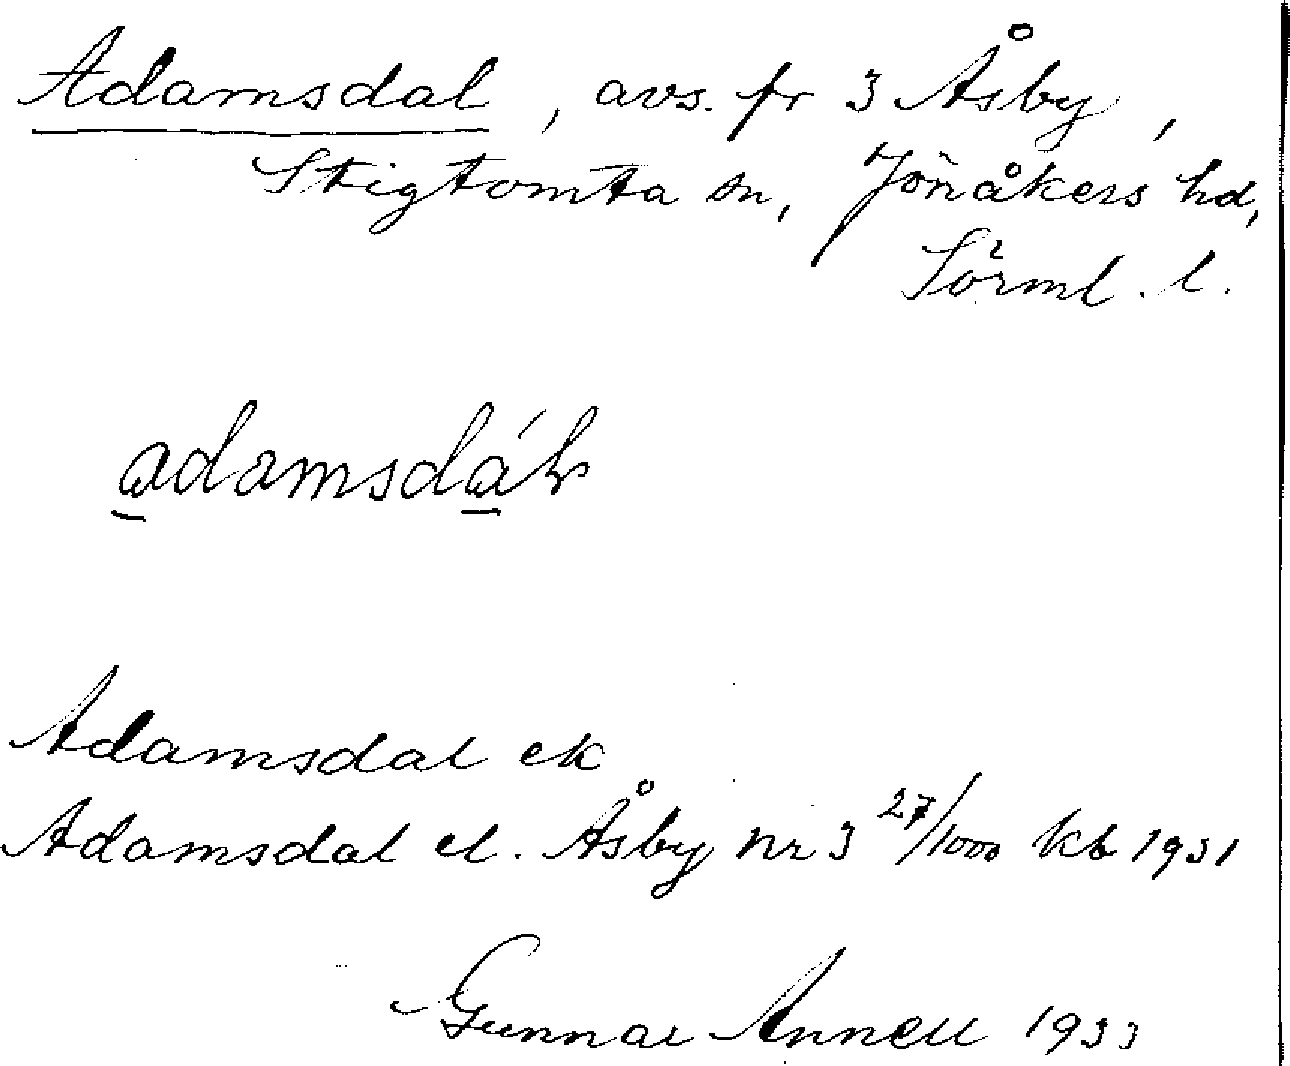 Adamsdal, avs. fr 3 Åsby,
Stigtomta sn, Jönåkers hd,
Sörml. l.
adamsdál
Adamsdal ek
Adamsdal el. Åsby nr 3 27/1000 kb 1931
Gunnar Annell 1933